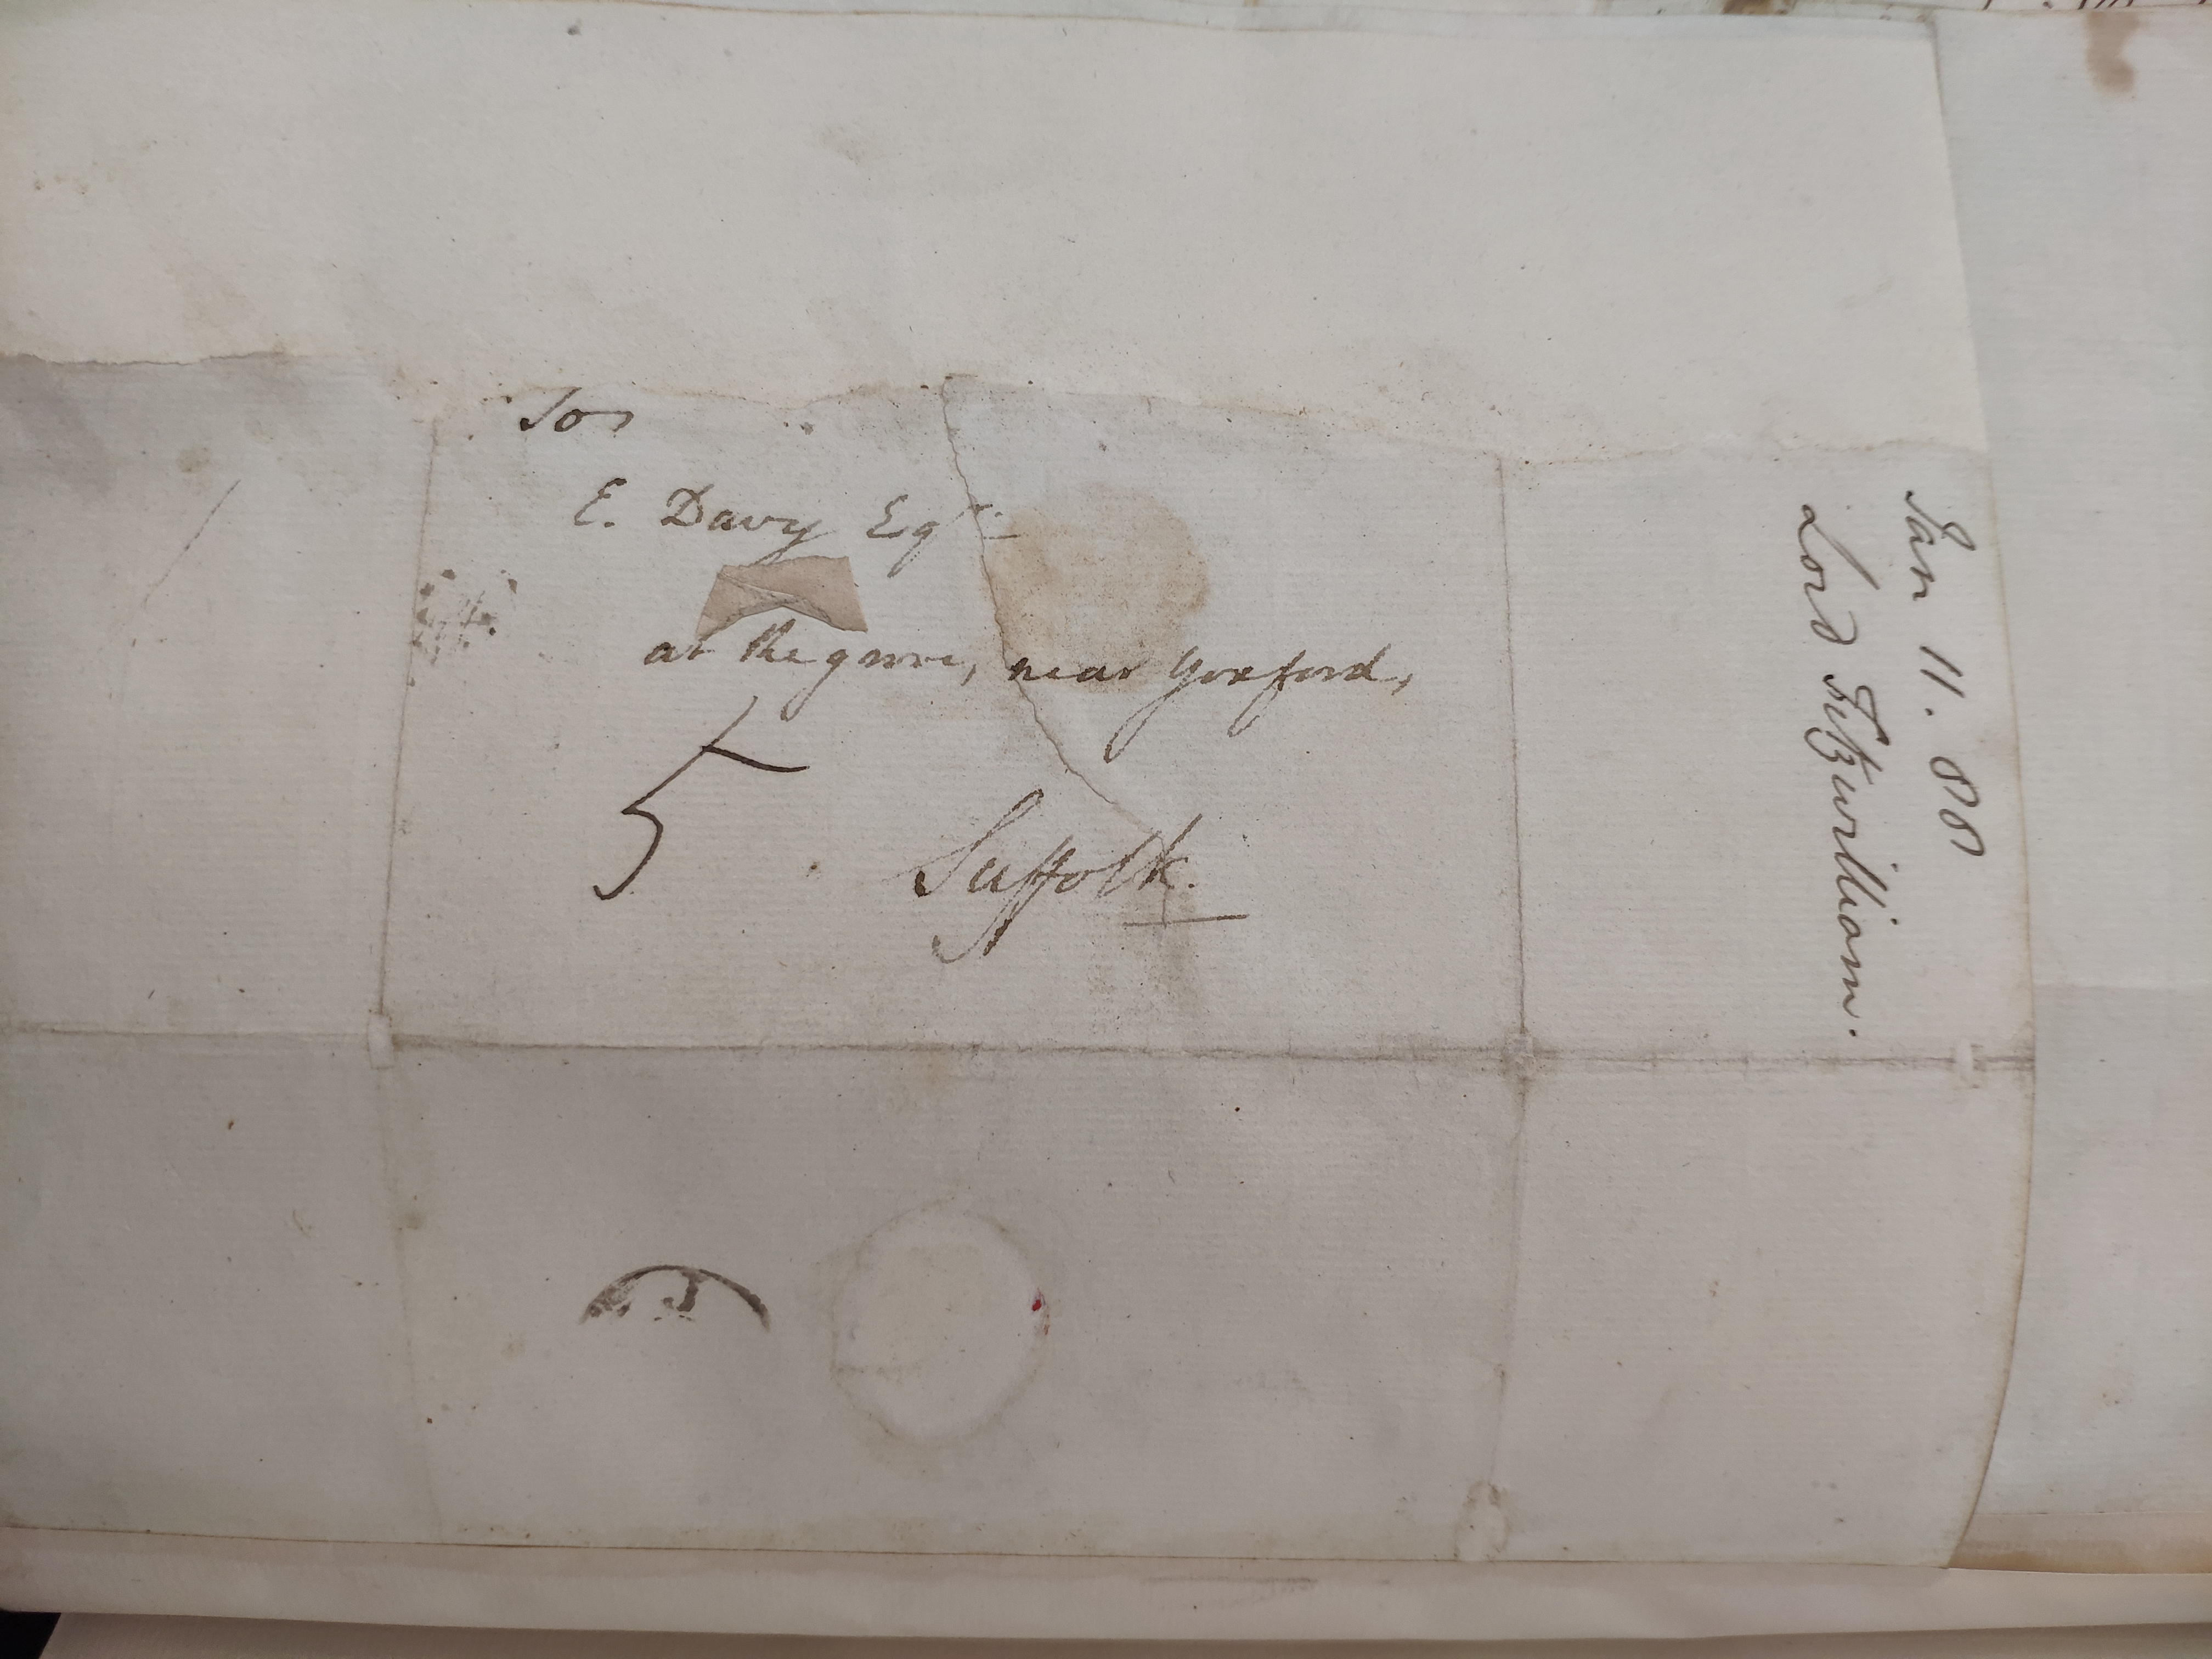 To
E. Davy Esqr.
at the grove, near Yoxford,
5
Suffolk.
Jan 11. 88
Lord Fitzwilliam.